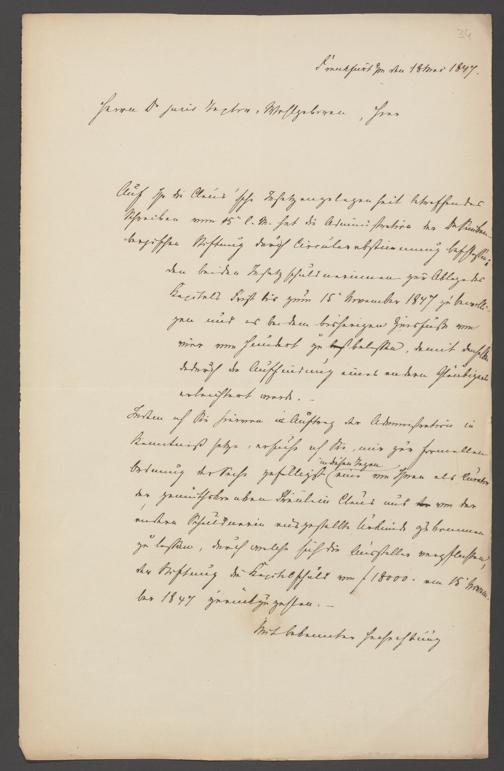 34
Frankfurt den 18 Mai 1847.
Herrn Dr. juris Textor, Wohlgeboren, hier
Auf Ihr die Claus'sche Insatzangelegenheit betreffendes
Schreiben vom 15 l. M. hat die Administration der Dr. Senken-
bergischen Stiftung durch Circularabstimmung beschlossen,
den beiden Insatzschuldnerinnen zur Ablage des
Kapitals Frist bis zum 15 November 1847 zu bewilli-
gen und es bei dem bisherigen Zinsfuße von
vier vom Hundert zu belassen, damit denselben
dadurch die Auffindung eines andern Gläubigers
erleichtert werde. –
Indem ich Sie hiervon im Auftrag der Administration in
Kenntniß setze, ersuche ich Sie, mir zur formellen
in diesen Tagen
Ordnung der Sache gefälligst eine von Ihnen als Curator
der gemüthskranken Fräulein Claus und von der
andern Schuldnerin ausgestellte Urkunde zukommen
zu lassen, durch welche sich die Aussteller verpflichten,
der Stiftung die Kapitalschuld von f 18000. am 15 Novem-
ber 1847 zurückzuzahlen. –
Mit bekannter Hochachtung